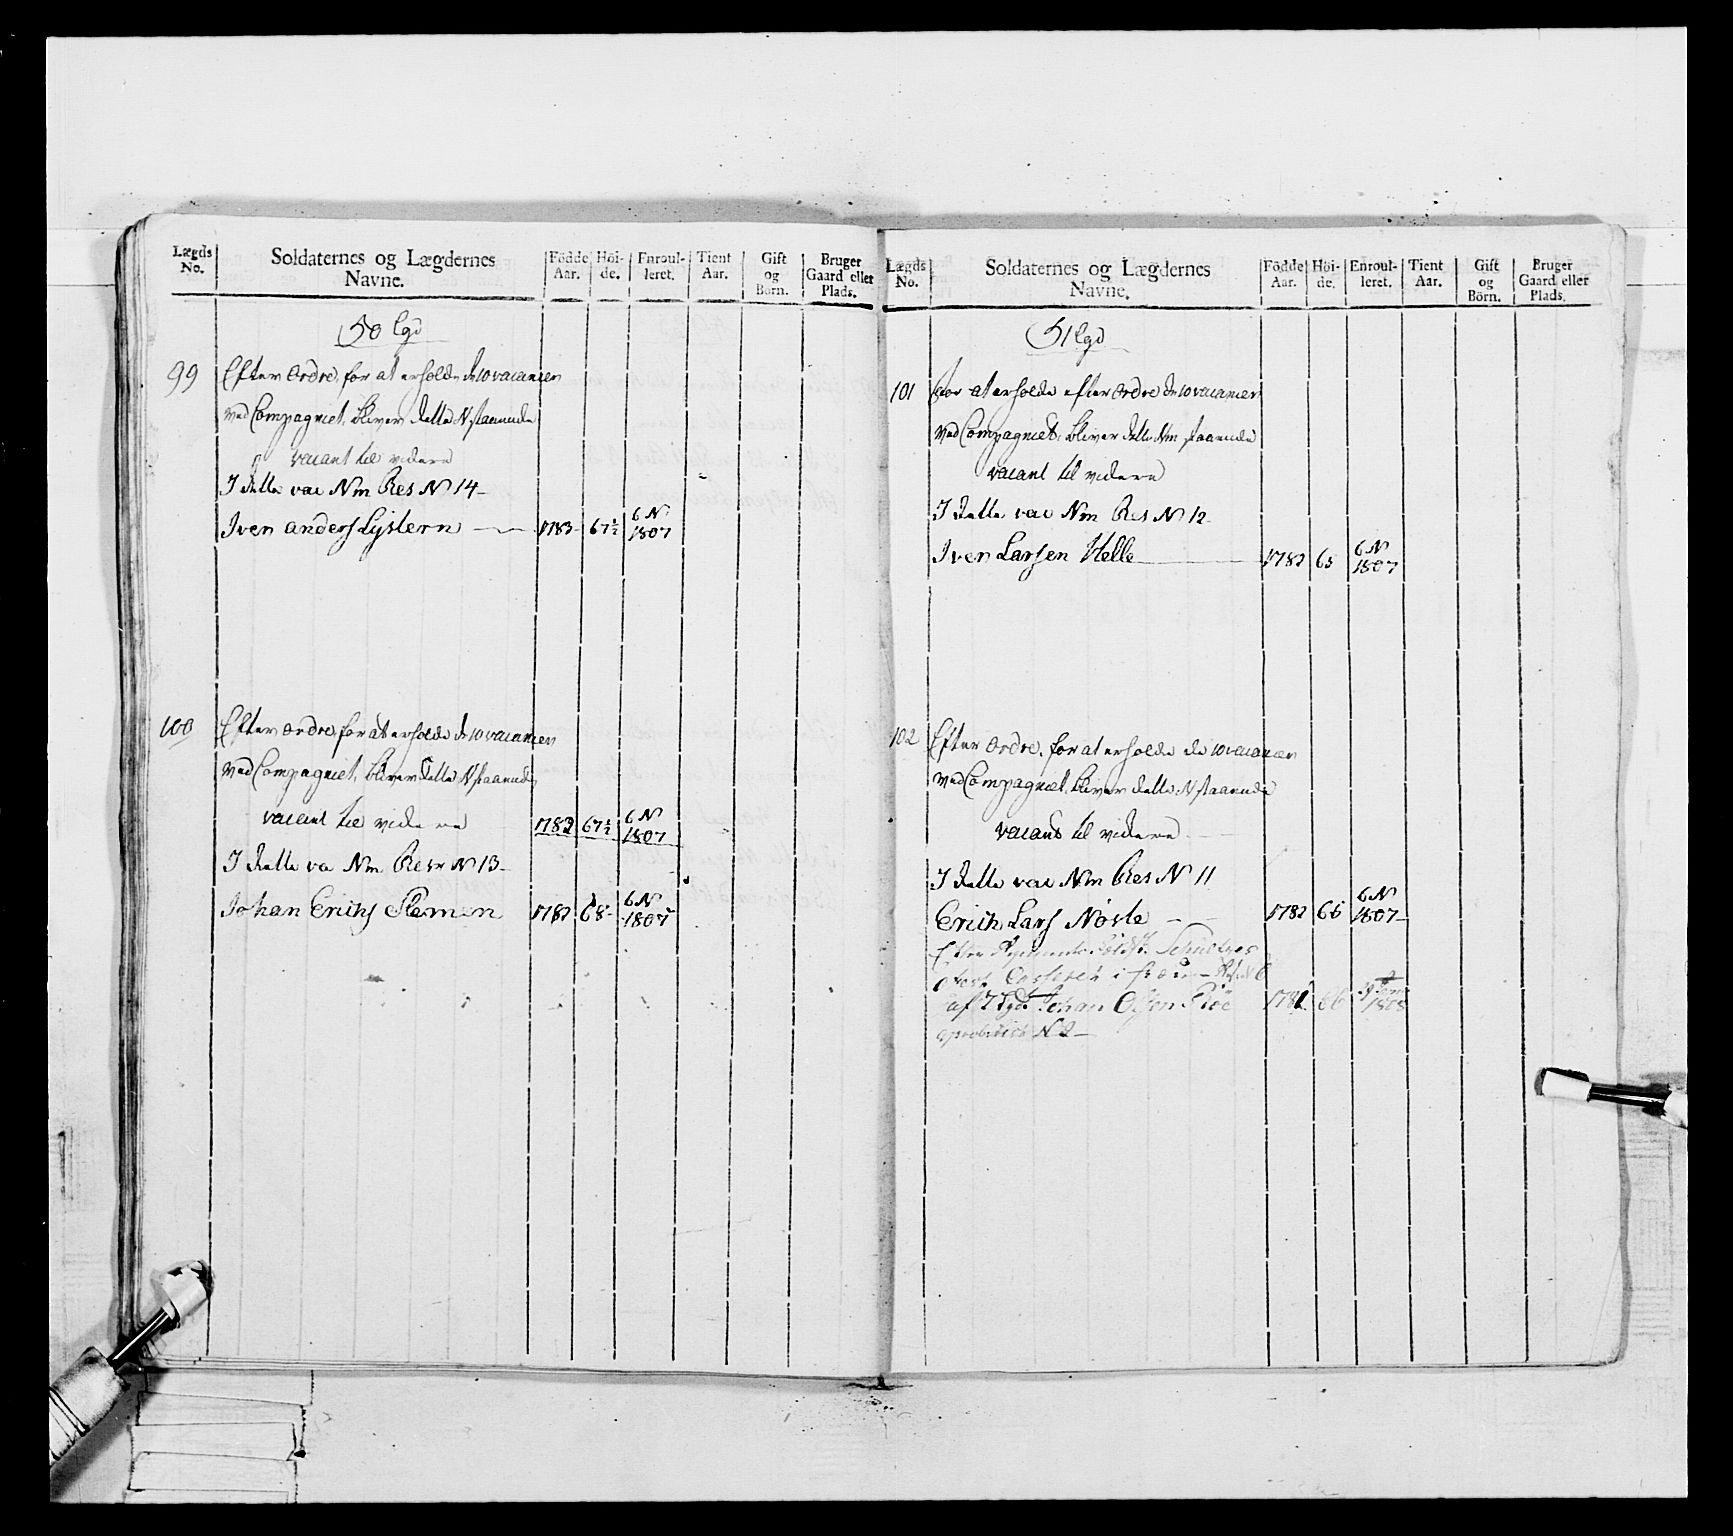 Lægds No.
Soldaternes og Lægdernes Navne.
Födde Aar.
Höi-de.
Enroul-leret.
Tient Aar.
Gift og Börn.
Bruger Gaard eller Plads.
50 Lgd
99 Efter Ordre, for at erholde de 10 vacancer
ved Compagniet, bliver dette N staaende
vacant til videre
I dette vac Nm Res N 14-
Iver Anders Lystern 1783 67½ 6 N 1807
100 Efter Ordre, for at erholde de 10 vacancer
ved Compagniet, bliver dette N staaende
vacant til videre 1782 67½ 6 N 1807
I dette va Nm Resr N 13-
Johan Erichs 1782 68 6 N 1807
Lægds No.
Soldaternes og Lægdernes Navne.
Födde Aar.
Höi-de.
Enroul-leret.
Tient Aar.
Gift og Börn.
Bruger Gaard eller Plads.
51 Lgd
101 for at erholde efter Ordre de 10 vacancer
ved Compagniet, bliver dette Nm staaende
vacant til videre
I dette vac Nm Res N 12-
Iver Larsen Helle 1782 65 6 N 1807
102 Efter Ordre, for at erholde de 10 vacancer
ved Compagniet, bliver dette N staaende
vacant til videre
I dette vac Nm Res N 11
Erich Lars Nøste 1782 66 6 N 1807
Efter
i
af Lgd Johan Olsen 66 1808
N 2